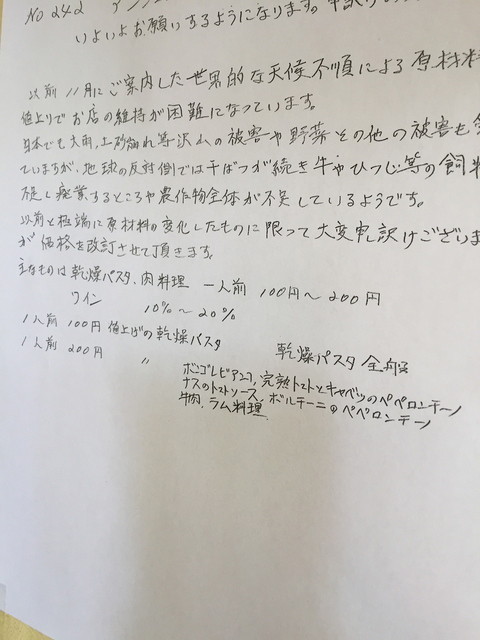 No 242
いよいよお願いするようになります。
以前 11月にご案内した世界的な天候不順による原材料
値上りでお店の維持が困難になっています。
日本でも大雨、土砂崩れ等沢山の被害や野菜その他の被害も
ていますが、地球の反対側では干ばつが続き牛やひつじ等の飼料
足し廃業するところや農作物全体が不足しているようです。
以前と極端に原材料の変化したものに限って大変申し訳けございま
が価格を改訂させて頂きます。
主なものは乾燥パスタ、肉料理 一人前 100円〜200円
ワイン 10%〜20%
1人前 100円 値上げの乾燥パスタ 乾燥パスタ全般
1人前 200円 〃
ボンゴレビアンコ、完熟トマトとキャベツのペペロンチーノ
ナスのトマトソース、ポルチーニのペペロンチーノ
牛肉、ラム料理